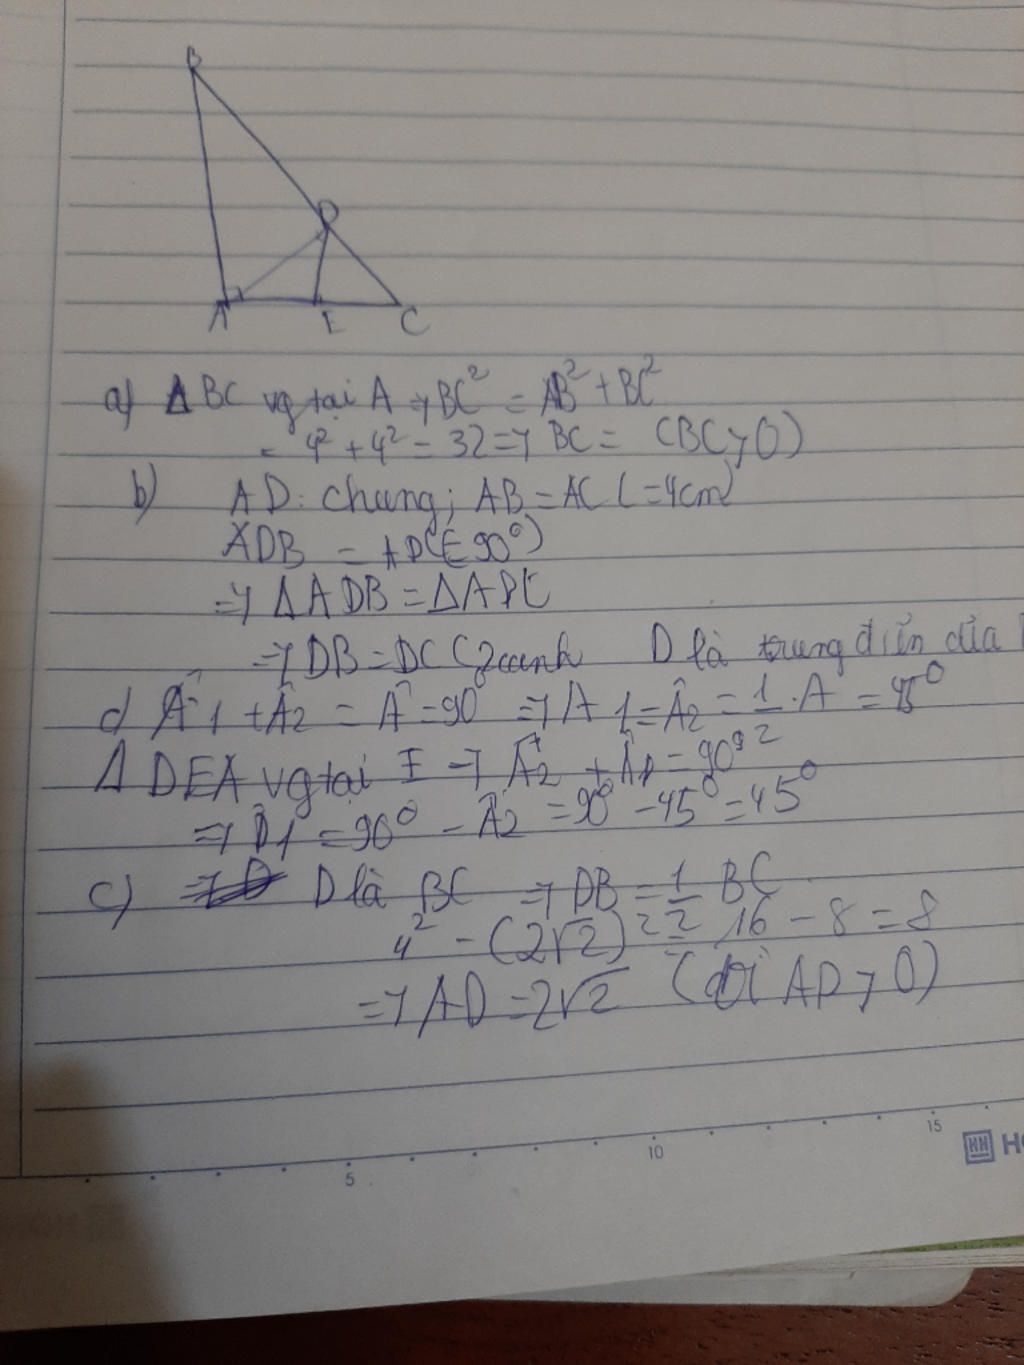 B
D
A E C
a) ΔBC vg tại A => BC² = AB² + BC²
= 4² + 4² = 32 => BC = (BC > 0)
b) AD: chung; AB = AC (= 4cm
ADB = ADC (= 90°)
=> ΔADB = ΔADC
=> DB = DC (2 cạnh D là trung điểm của
d Â1 + Â2 = Â = 90° => A1 = Â2 = 1/2 . A = 45°
Δ DEA vg tại E => Â2 + D1 = 90°
=> D̂1 = 90° - Â2 = 90° - 45° = 45°
c) D là BC => DB = 1/2 BC
4² - (2√2)² = 16 - 8 = 8
=> AD = 2√2 (dời AD > 0)
5 10 15